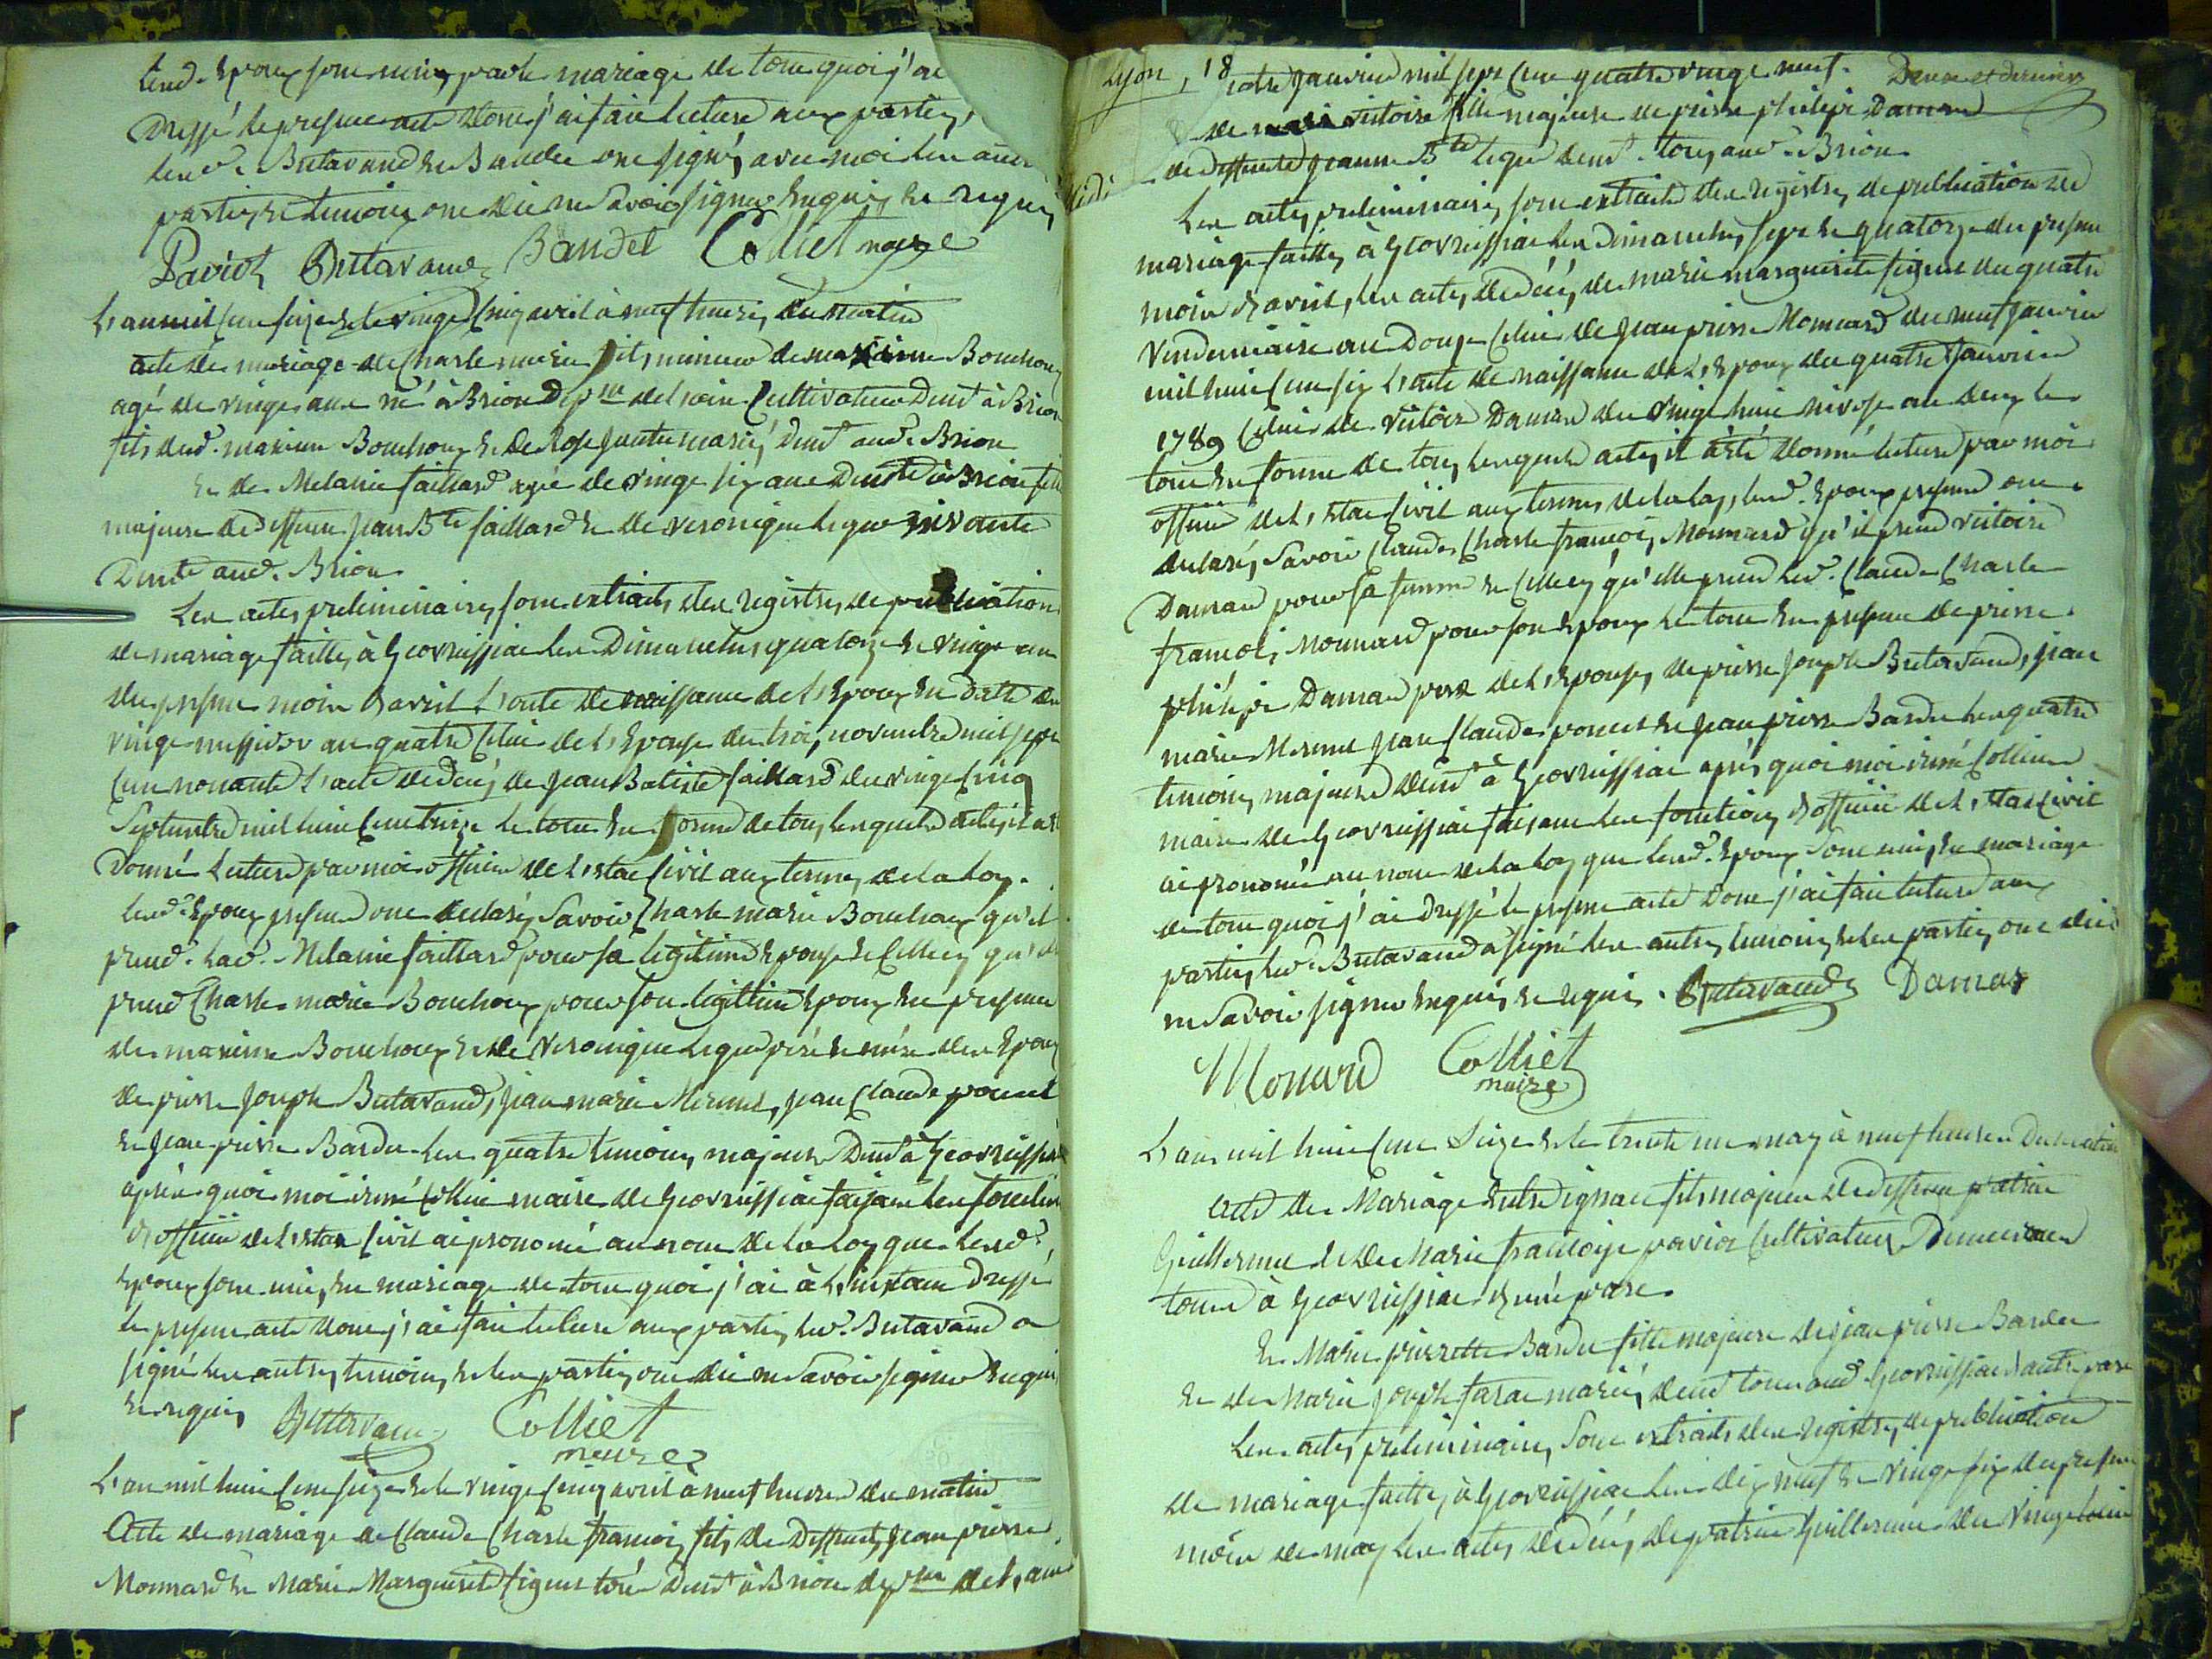 lesd. Epoux sont unis par le mariage de tout quoi j'ai
Dressé le présent acte dont j'ai fait lecture aux parties,
lesd. Butavand et Baudet ont signé, avec moi les autres
parties et temoins ont dit ne savoir signer Enquis et requis
Paviot Butavand Baudet Colliet maire
L'an mil huit cent seize et le vingt cinq avril à neuf heures du matin
acte de mariage de Charle marie fils mineur de maxime Bouchoux
agé de vingt ans né à Brion Dep.t de l'ain Cultivateur Demt à Brion
fils dud. maxime Bouchoux et De Rose mariés demt aud. Brion
Et de Melanie faillard agé de vingt six ans Demte à Brion fille
majeure de deffunt Jean Bte faillard et de veronique leger vivante
Demte aud. Brion
Les actes preliminaires sont extraits des registres de publication
de mariage faittes à Geovreissiat les Dimanches quatorze et vingt un
du present mois d'avril L'acte de naissance de l'Epoux En datte du
vingt messidor an quatre Celui de l'Epouse du trois novembre mil sept
cent nonante L'acte de decés de Jean Batiste faillard du vingt cinq
Septembre mil huit cent treize le tout En forme de tous lesquels actes il a été
Donné lecture par moi officier de l'etat Civil aux termes de la loy.
lesd. Epoux present ont declaré Savoir Charle marie Bouchoux qu'il
prend lad. Melanie faillard pour sa legitime Epouse et Celle cy qu'elle
prend Charle marie Bouchoux pour son legittime Epoux En presence
de maxime Bouchoux et de Veronique leger père et mère des Epoux
de pierre Joseph Butavand, Jean marie Mermet, Jean Claude poncet
et Jean pierre Bardu les quatre temoins majeurs Demt à Geovreissiat
après quoi moi Colliet maire de Geovreissiat faisant les fonctions
d'officier de l'etat Civil ai prononcé au nom de la loy que lesd.
Epoux sont unis En mariage de tout quoi j'ai à l'instant dressé
le present acte dont j'ai fait lecture aux parties led. Butavand a
signé les autres temoins et les parties ont dit ne Savoir signer Enquis
et requis Butavand Colliet
maire
L'an mil huit cent seize et le vingt cinq avril à neuf heures du matin
Acte de mariage de Claude Charle françois fils de Deffunts Jean pierre
Monnard et Marie Marguerite demt à Brion dept de l'ain
Lyon, 18 quatre Janvier mil sept cent quatre vingt neuf. Douze et dernier
de victoire fille majeure de pierre philipe Daman
de deffunte Jeanne Bte leger demt tous aud. Brion
Les actes preliminaires sont extraits des registres de publication de
mariage faittes à Geovreissiat les dimanches sept et quatorze du present
mois d'avril, les actes de decés de marie marguerite du quatre
Vendemiaire an Douze Celui de Jean pierre Monnard du neuf Janvier
mil huit cent six L'acte de naissance de l'Epoux du quatre Janvier
1789 Celui de victoire Daman du vingt huit nivose an deux le
tout En forme de tous lesquels actes il a été donné lecture par moi
officier de l'etat Civil aux termes de la loy, lesd. Epoux present ont
declaré, Savoir Claude Charle françois Monnard qu'il prend victoire
Daman pour sa femme et Celle cy qu'elle prend led. Claude Charle
françois Monnard pour son Epoux le tout En presence de pierre
philipe Daman pere de l'Epouse, de pierre Joseph Butavand, Jean
marie Mermet Jean Claude poncet et Jean pierre Bardu les quatre
temoins majeurs demt à Geovreissiat après quoi moi Colliet
maire de Geovreissiat faisant les fonctions d'officier de l'etat Civil
ai prononcé au nom de la loy que lesd. Epoux sont unis En mariage
de tout quoi j'ai dressé le present acte dont j'ai fait lecture aux
parties, led. Butavand a signé les autres temoins et les parties ont dit
ne Savoir signer Enquis et requis. Butavand Daman
Monard Colliet
maire
L'an mil huit cent Seize et le trente un may à neuf heures Du matin
Acte de Mariage Entre ignace fils majeur de deffunt patrice
Guillerme et de Marie françoise paviot Cultivateur Demeurant
tous à Geovreissiat d'une part
Et Marie pierrette Bardu fille majeure de Jean pierre Bardu
et de Marie Joseph mariés demt tous aud. Geovreissiat d'autre part
Les actes preliminaires sont extraits des registres de publication
de mariage faittes à Geovreissiat les dix neuf et vingt six du present
mois de may les actes de decés de patrice Guillerme du vingt huit